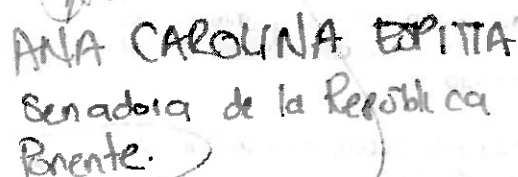 ANA CAROLINA ESPITIA
Senadora de la República
Ponente.